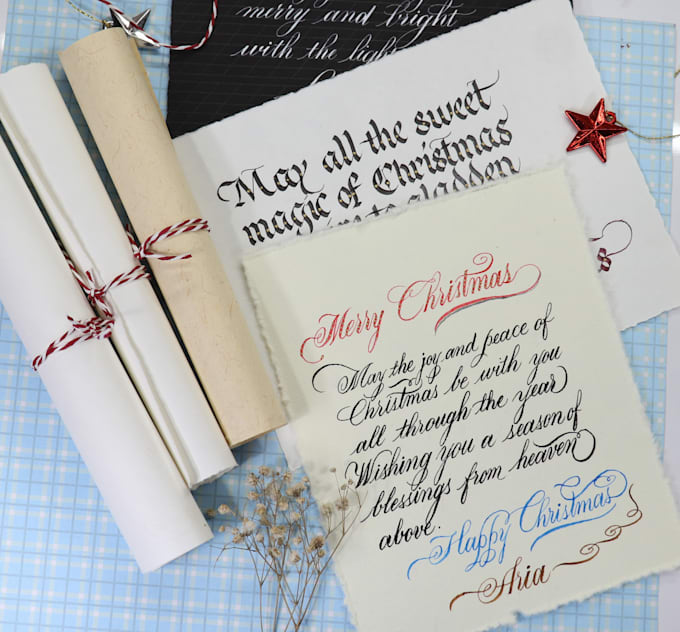 merry and bright
with the light
May all the sweet
magic of Christmas
to gladden
Merry Christmas
May the joy and peace of
Christmas be with you
all through the year
Wishing you a season of
blessings from heaven
above.
Happy Christmas
Aria